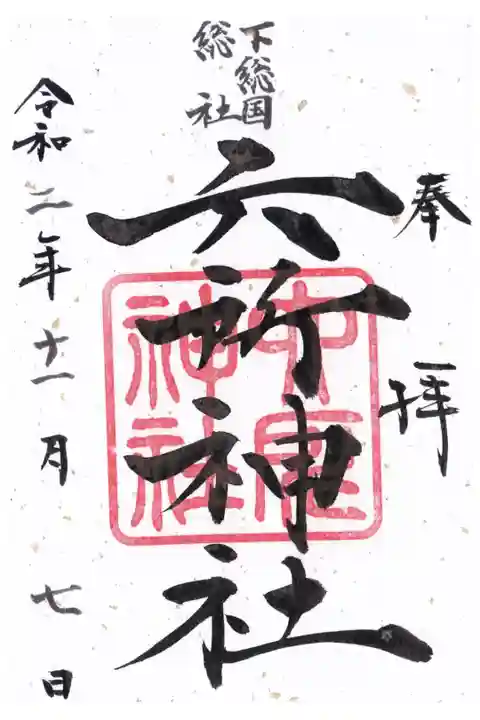 奉拝
下総国
総社
六所神社
神社
令和二年十一月七日